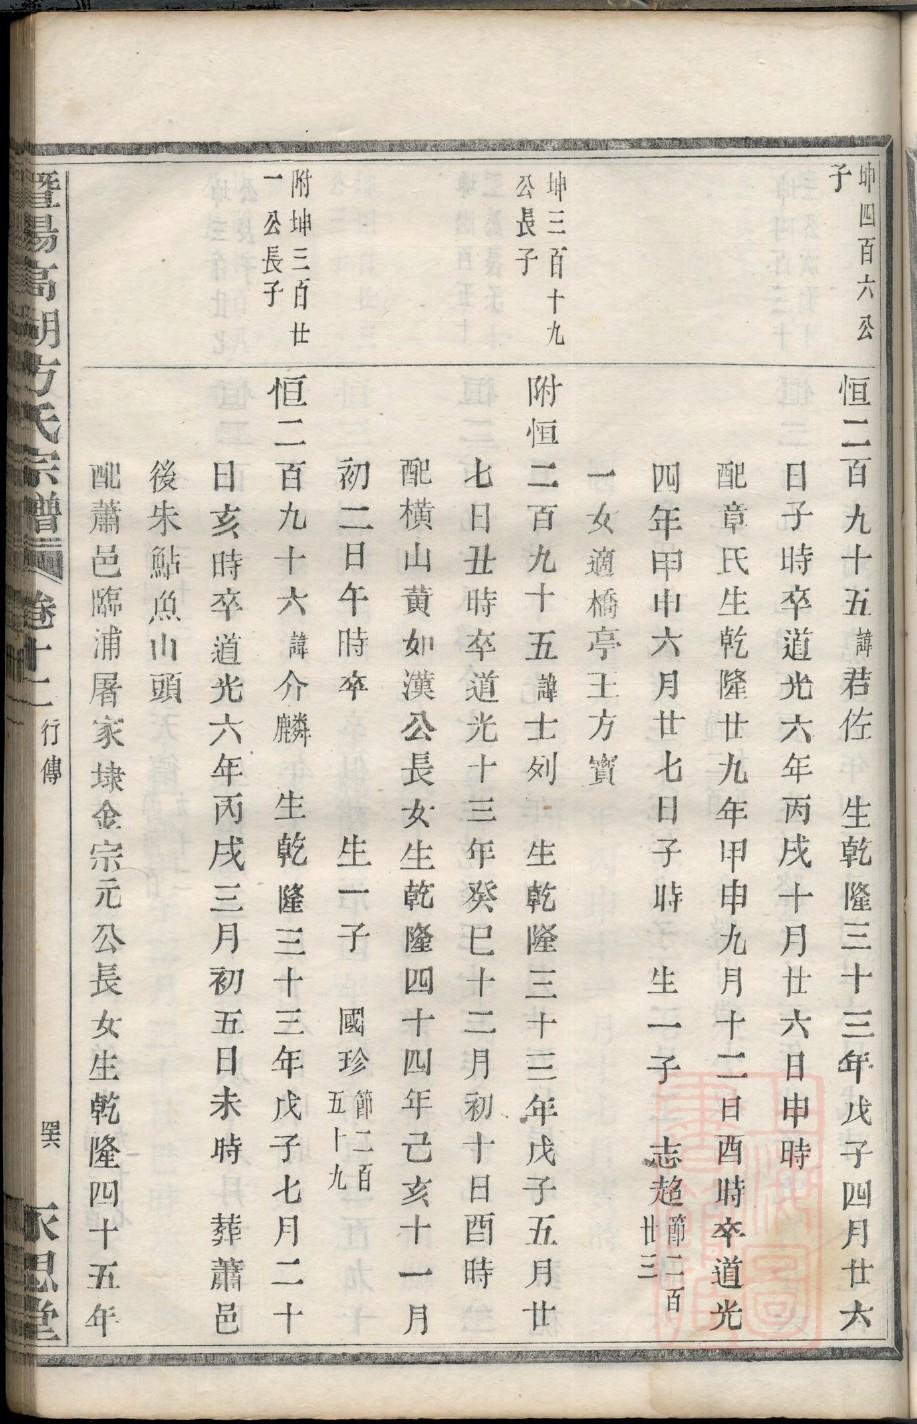 坤四百六公
子
恒二百九十五諱君佐　生乾隆三十三年戊子四月廿六
日子時卒道光六年丙戌十月廿六日申時
配章氏生乾隆廿九年甲申九月十二日酉時卒道光
四年甲申六月廿七日子時　生一子　志超節二百
廿三
一女適橋亭王方寶
坤三百十九
公長子
附恒二百九十五諱士列　生乾隆三十三年戊子五月廿
七日丑時卒道光十三年癸巳十二月初十日酉時
配橫山黃如漢公長女生乾隆四十四年己亥十一月
初二日午時卒　生一子　國珍節二百
五十九
附坤三百廿
一公長子
恒二百九十六諱介麟　生乾隆三十三年戊子七月二十
日亥時卒道光六年丙戌三月初五日未時　葬蕭邑
後朱鮎魚山頭
配蕭邑臨浦屠家埭金宗元公長女生乾隆四十五年
暨陽高湖方氏宗譜　卷十二　行傳　永思堂